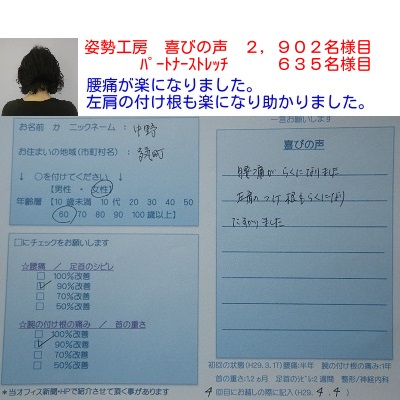 姿勢工房 喜びの声 2,902名様目
パートナーストレッチ 635名様目
腰痛が楽になりました。
左肩の付け根も楽になり助かりました。
お名前 か ニックネーム: 中野
お住まいの地域(市町村名):
↓ ○を付けてください ↓
【男性 ・ 女性】
年齢層【10歳未満 10代 20 30 40 50
60 70 80 90 100歳以上】
□にチェックをお願いします
☆腰痛 / 足首のシビレ
□ 100%改善
□ 90%改善
□ 70%改善
□ 50%改善
☆腕の付け根の痛み / 首の重さ
□ 100%改善
□ 90%改善
□ 70%改善
□ 50%改善
*当オフィス新聞・HPで紹介させて頂く事があります
一言お願いします
喜びの声
腰痛がらくになりました
左肩のつけ根もらくになり
たすかりました
初回の状態(H29.3.11)腰痛:半年 腕の付け根の痛み:1年
首の重さ:1.2ヵ月 足首のシビレ:2週間 整形/神経内科
4回目にお越しの際に記入(H29.4.4)